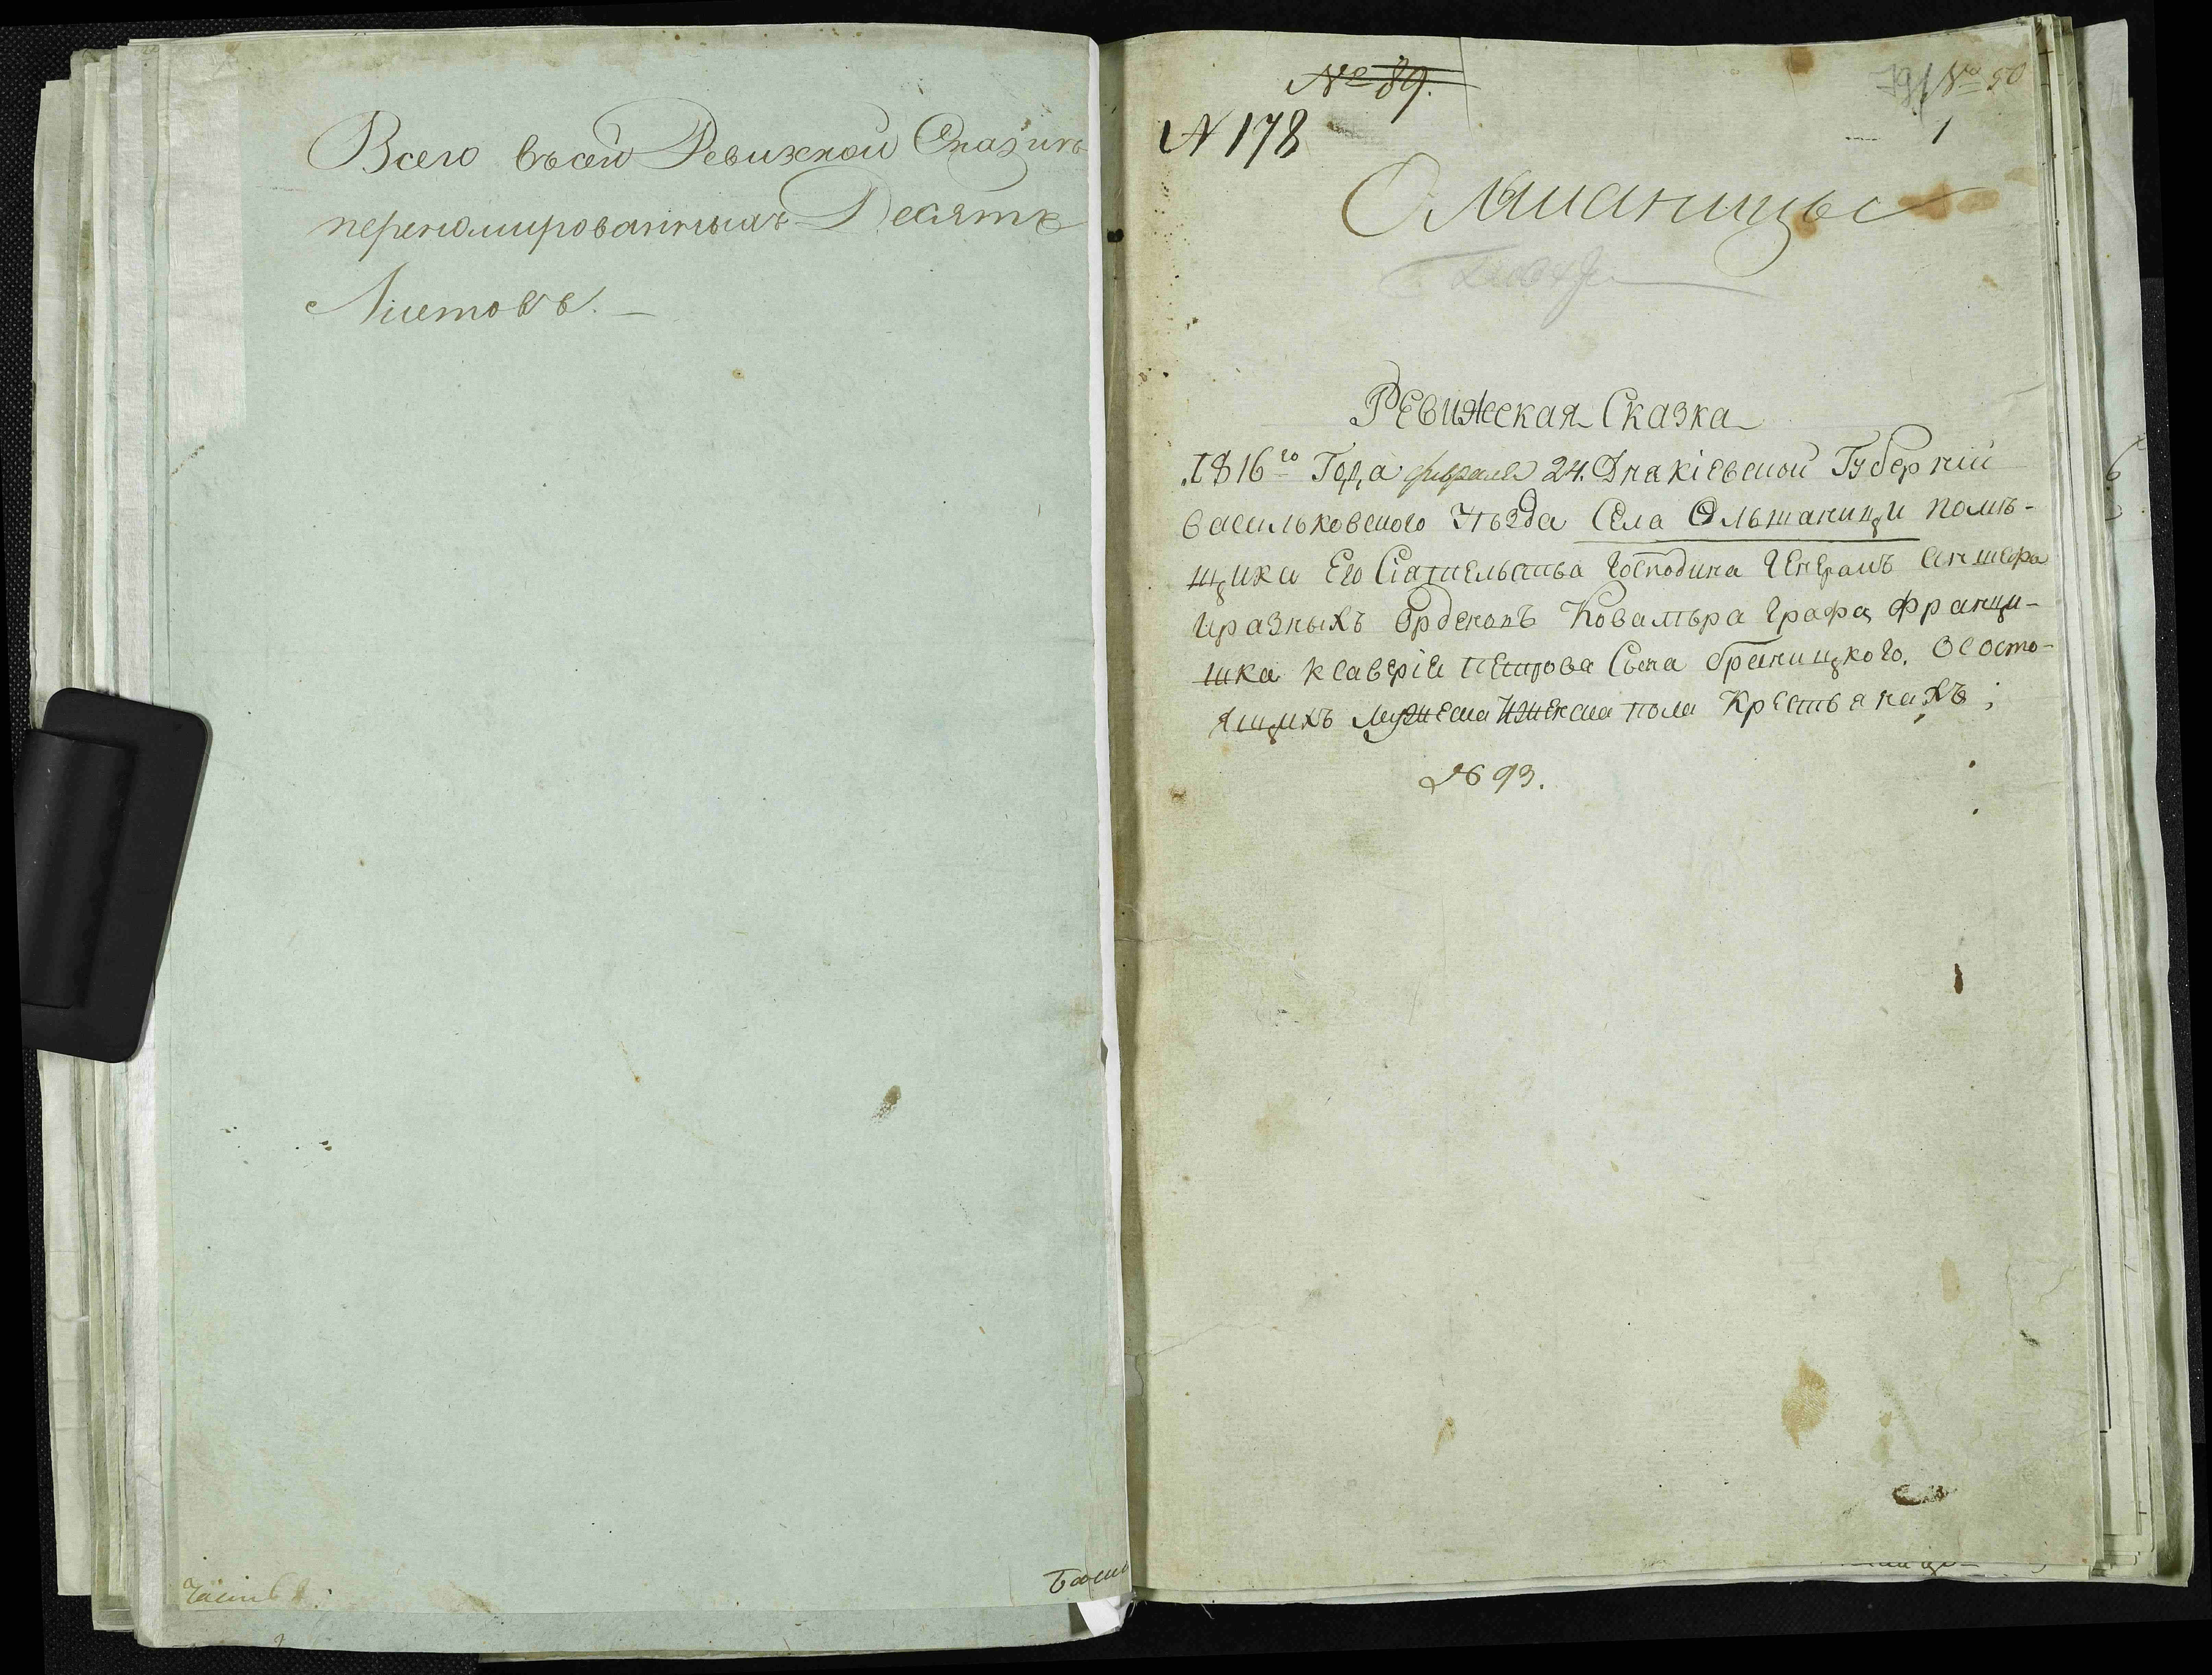 Всего въ сей Ревизкой Сказки
переномированныхъ Десять
Листовъ. —
Часть
№ 89.
№ 50
N 178
1
Ольшаницы
Ревижская Сказка
1816го Года февраля 24. Дня киевской Губернии
васильковского Уезда Села Ольшаници поме-
щика Его Сіятельства Господина Генералъ Аншефа
и разныхъ Орденовъ Ковалѣра Графа Францы-
шка ксаверія петрова Сына браницкого, О Состо-
ящихъ мужеска и женска пола Крестьянахъ;
№ 93.